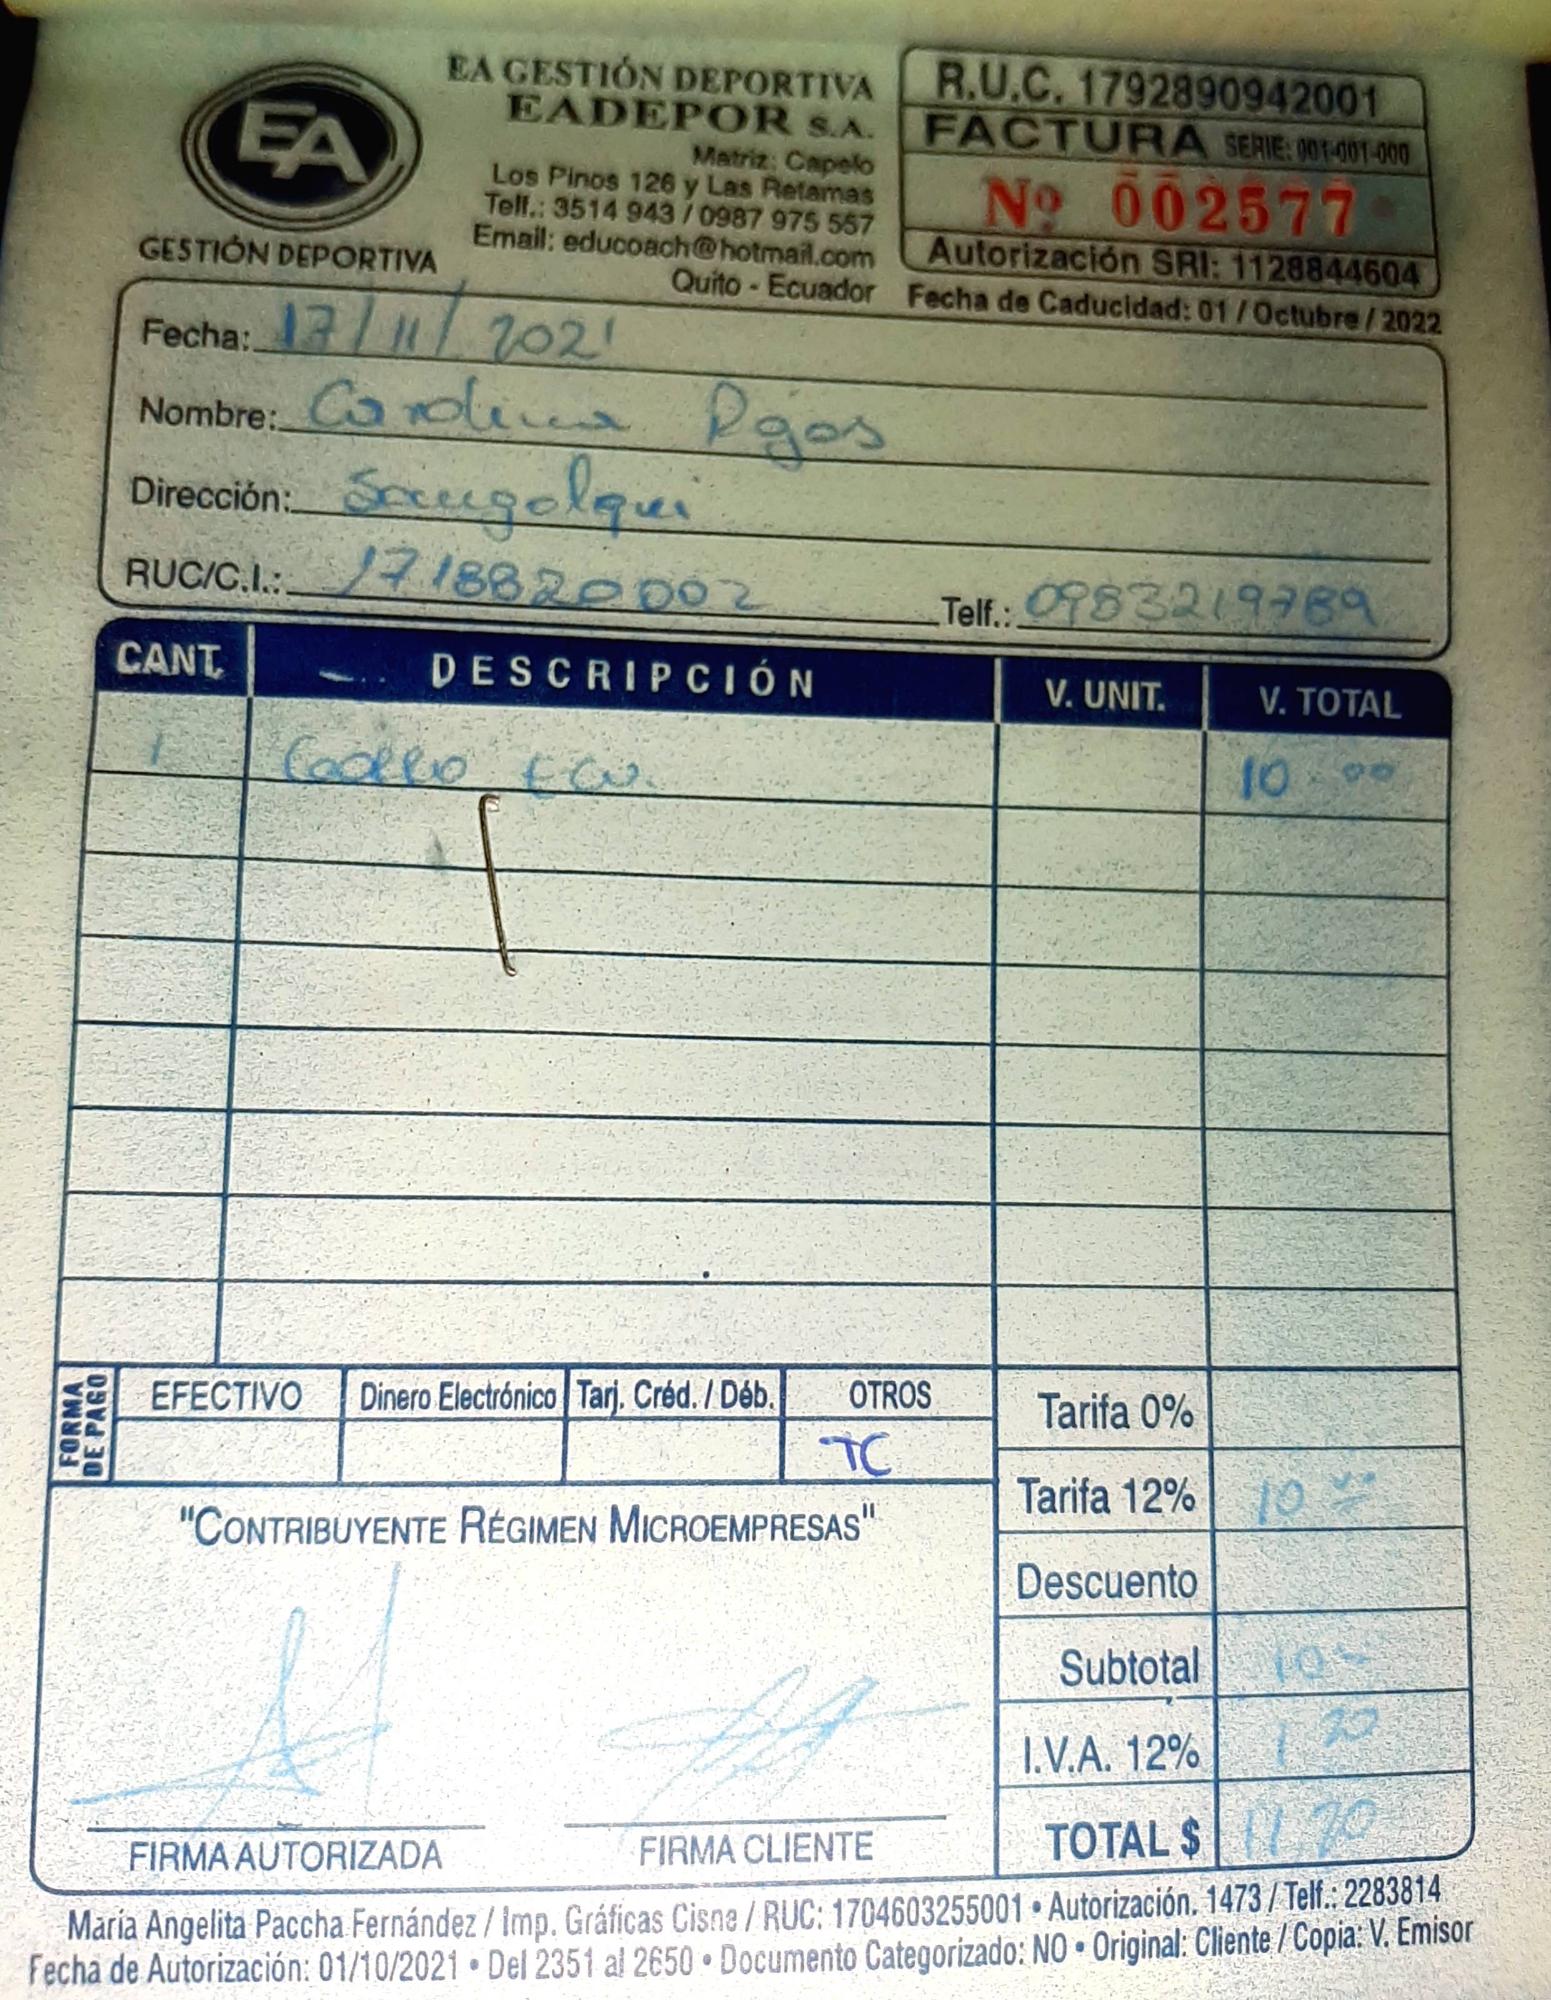 EA
GESTIÓN DEPORTIVA
EA GESTIÓN DEPORTIVA
EADEPOR S.A.
Matriz: Capelo
Los Pinos 126 y Las Retamas
Telf.: 3514 943 / 0987 975 557
Email: educoach@hotmail.com
Quito - Ecuador
R.U.C. 1792890942001
FACTURA SERIE: 001-001-000
Nº 002577
Autorización SRI: 1128844604
Fecha de Caducidad: 01 / Octubre / 2022
Fecha: 17/11/2021
Nombre: Carolina
Dirección: Sangolqui
RUC/C.I.: 1718820002 Telf.: 0983219789
CANT. DESCRIPCIÓN V. UNIT. V. TOTAL
1 10.00
FORMA DE PAGO
EFECTIVO Dinero Electrónico Tarj. Créd. / Déb. OTROS
TC
Tarifa 0%
Tarifa 12% 10.00
Descuento
Subtotal 10
I.V.A. 12% 1.20
TOTAL $ 11.20
"CONTRIBUYENTE RÉGIMEN MICROEMPRESAS"
FIRMA AUTORIZADA FIRMA CLIENTE
María Angelita Paccha Fernández / Imp. Gráficas Cisne / RUC: 1704603255001 • Autorización. 1473 / Telf.: 2283814
Fecha de Autorización: 01/10/2021 • Del 2351 al 2650 • Documento Categorizado: NO • Original: Cliente / Copia: V. Emisor